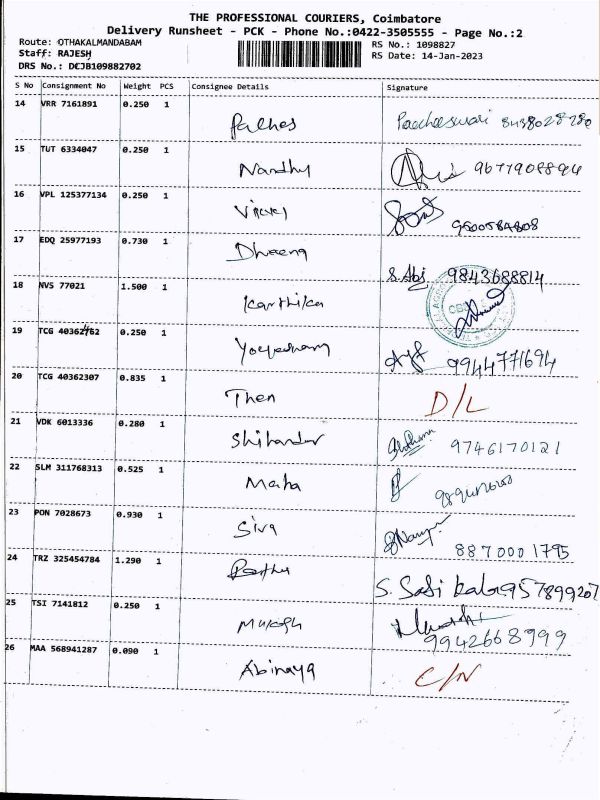 THE PROFESSIONAL COURIERS, Coimbatore
Delivery Runsheet - PCK - Phone No.:0422-3505555 - Page No.:2
Route: OTHAKALMANDABAM RS No.: 1098827
Staff: RAJESH RS Date: 14-Jan-2023
DRS No.: DCJB109882702
S No Consignment No Weight PCS Consignee Details Signature
14 VRR 7161891 0.250 1
15 TUT 6334047 0.250 1 Nandhy
16 VPL 125377134 0.250 1
17 EDQ 25977193 0.730 1 Dheena S. Abi 9843688814
18 NVS 77021 1.500 1 Karthika
19 TCG 40362762 0.250 1 9944771694
20 TCG 40362307 0.835 1 Then D/L
21 VDK 6013336 0.280 1 9746170121
22 SLM 311768313 0.525 1 Maha
23 PON 7028673 0.930 1 Siva 8870001795
24 TRZ 325454784 1.290 1 S. Sasi kala
25 TSI 7141812 0.250 1 Mukesh 9942668999
26 MAA 568941287 0.090 1 Abinaya C/N